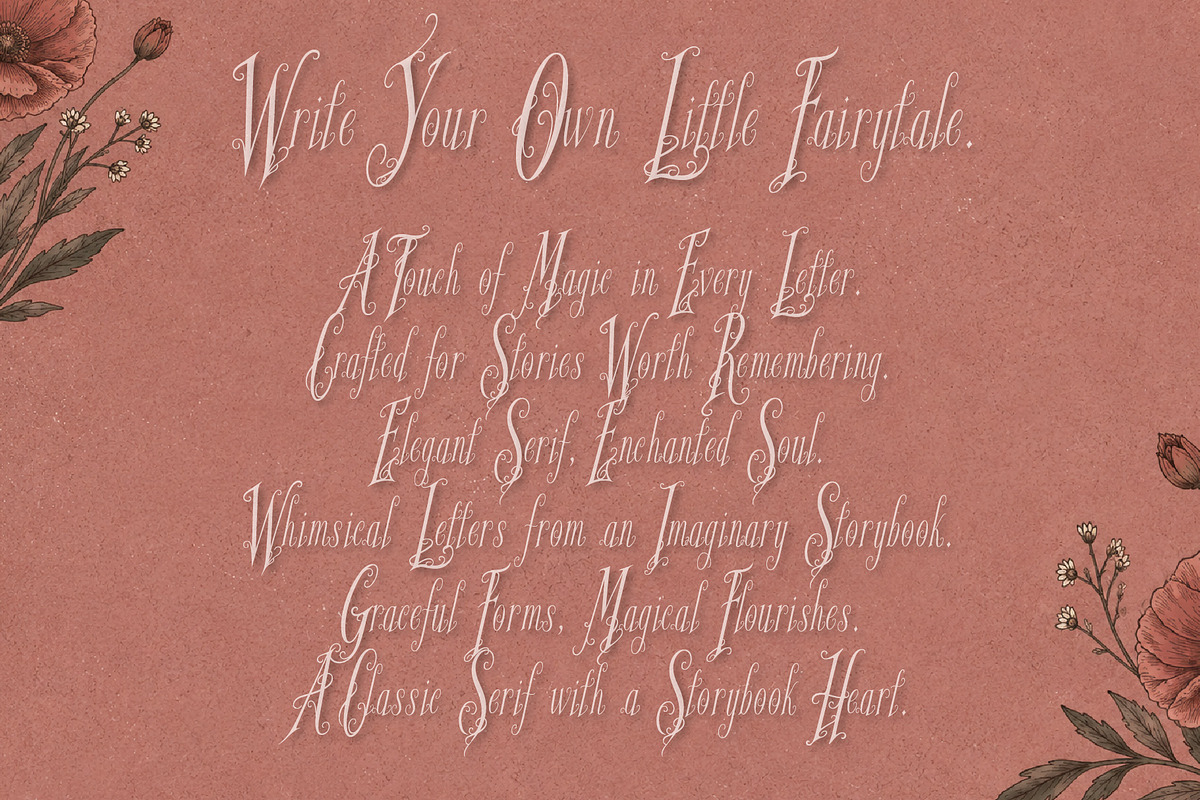 Write Your Own Little Fairytale.
A Touch of Magic in Every Letter.
Crafted for Stories Worth Remembering.
Elegant Serif, Enchanted Soul.
Whimsical Letters from an Imaginary Storybook.
Graceful Forms, Magical Flourishes.
A Classic Serif with a Storybook Heart.